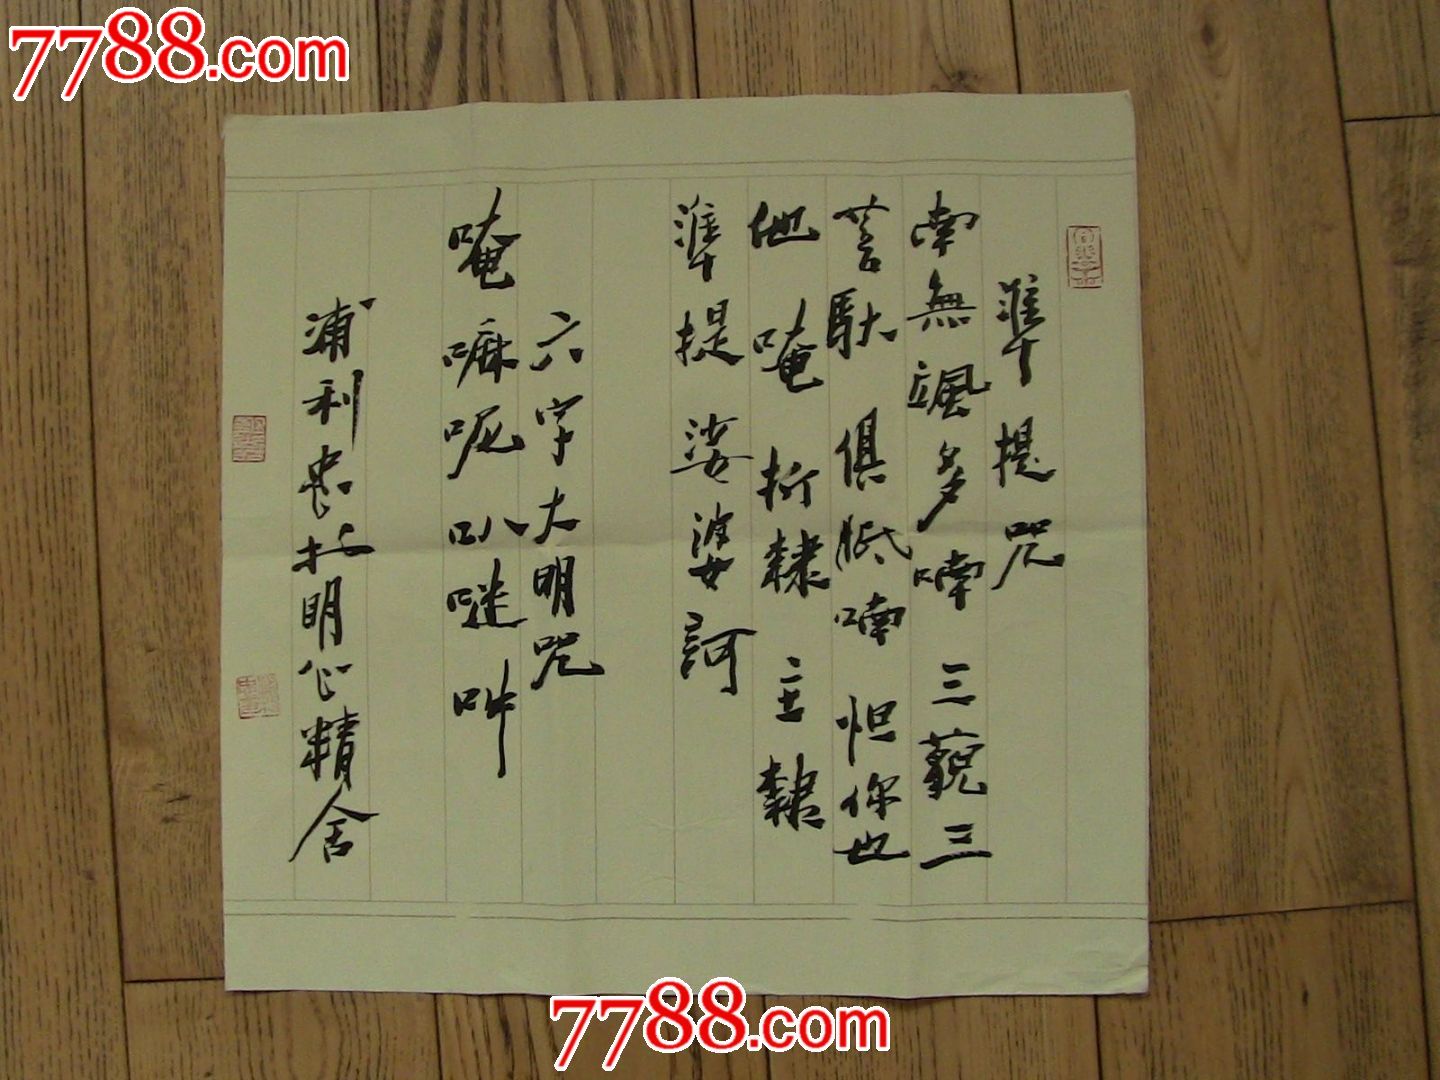 7788.com
準提咒
南無颯多喃三藐三
菩馱俱胝喃怛你也
他唵折隸主隸
準提娑婆訶
六字大明咒
唵嘛呢叭𠺗吽
浦利忠於明心精舍
7788.com